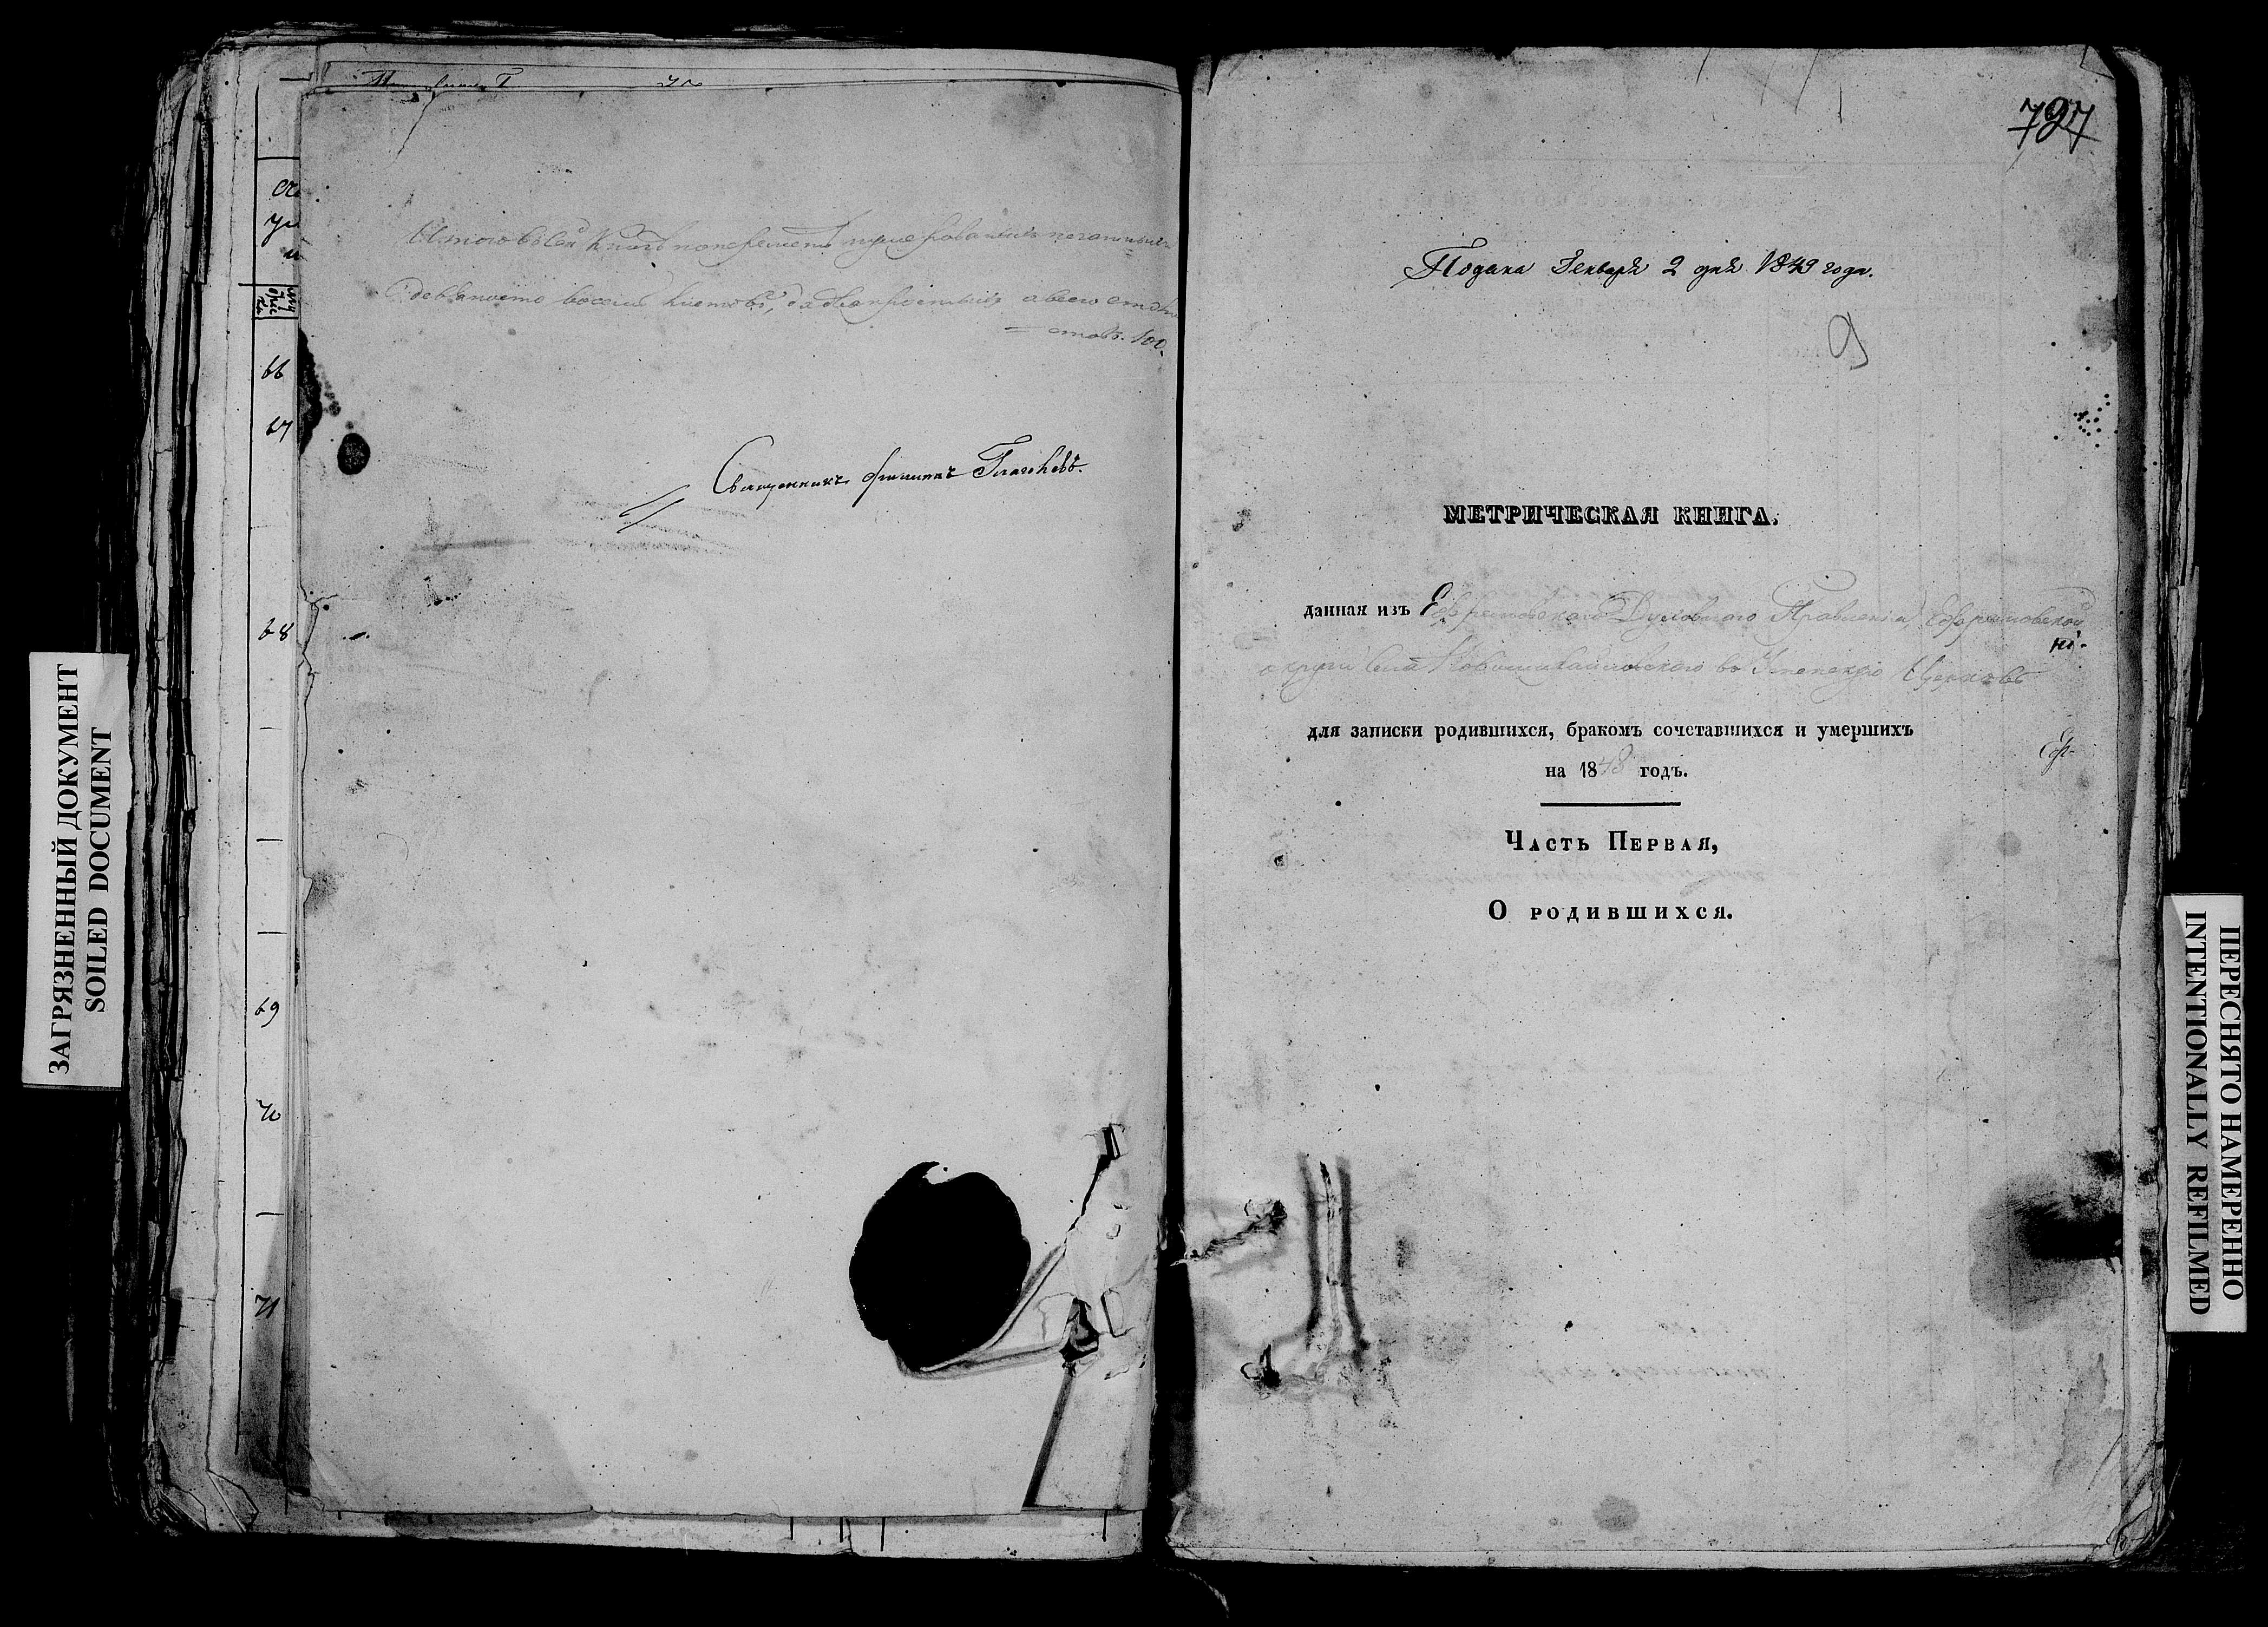 Итого въ сей книгѣ
девяносто восемь листовъ, да два простыхъ а всего сто ли-
= стовъ. 100.
Священникъ Филиппъ
66
67
68
69
70
71
ЗАГРЯЗНЕННЫЙ ДОКУМЕНТ
SOILED DOCUMENT
797
Подана Генваря 2 дня 1849 года.
9
МЕТРИЧЕСКАЯ КНИГА,
данная изъ Ефремовскаго Духовнаго Правленія, Ефремовской
округи села Новомихайловскаго въ Успенскую Церковь
для записки родившихся, бракомъ сочетавшихся и умершихъ
на 1848 годъ.
Часть Первая,
О родившихся.
ПЕРЕСНЯТО НАМЕРЕННО
INTENTIONALLY REFILMED